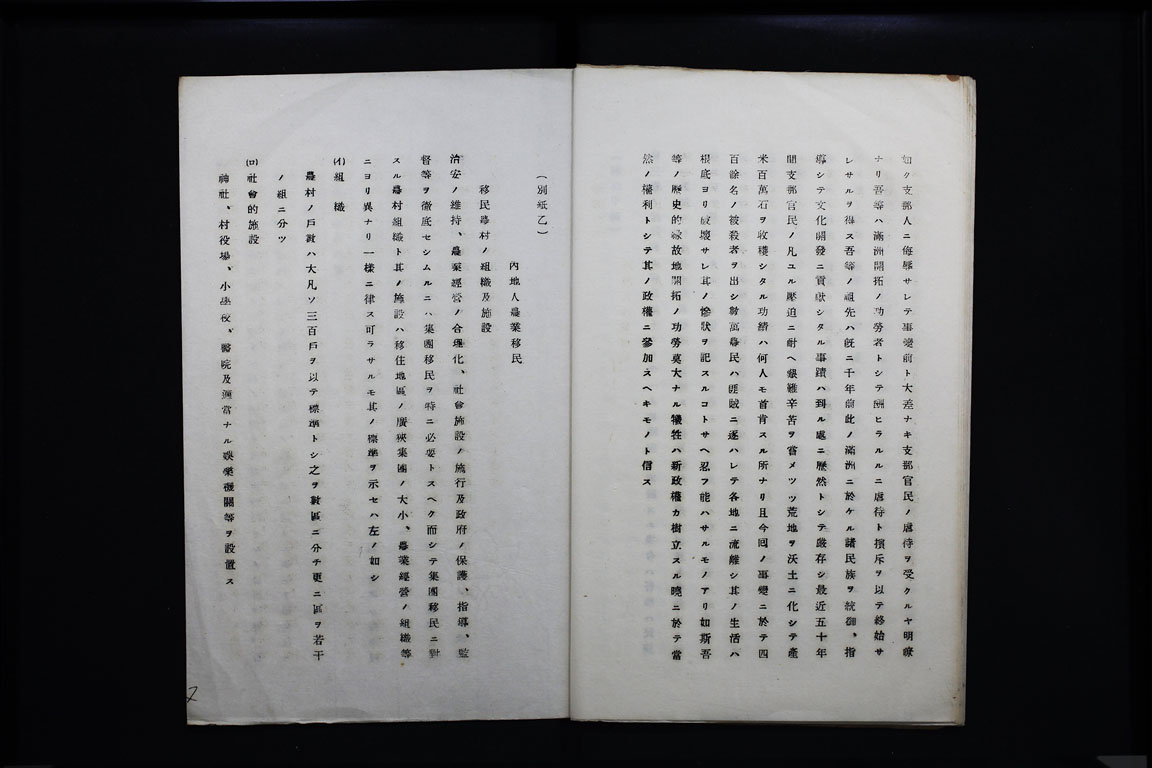 如ク支那人ニ侮辱サレテ事變前ト大差ナキ支那官民ノ虐待ヲ受クルヤ明瞭
ナリ吾等ハ滿洲開拓ノ功勞者トシテ酬ヒラルルニ虐待ト擯斥ヲ以テ終始サ
レサルヲ得ス吾等ノ祖先ハ旣ニ千年前此ノ滿洲ニ於ケル諸民族ヲ統御、指
導シテ文化開發ニ貢獻シタル事蹟ハ到ル處ニ歷然トシテ嚴存シ最近五十年
間支那官民ノ凡ユル壓迫ニ耐ヘ艱難辛苦ヲ嘗メツツ荒地ヲ沃土ニ化シテ產
米百萬石ヲ收穫シタル功績ハ何人モ首肯スル所ナリ且今回ノ事變ニ於テ四
百餘名ノ被殺者ヲ出シ數萬農民ハ匪賊ニ逐ハレテ各地ニ流離シ其ノ生活ハ
根底ヨリ破壞サレ其ノ慘狀ヲ記スルコトサヘ忍フ能ハサルモノアリ如斯吾
等ノ歷史的緣故地開拓ノ功勞莫大ナル犧牲ハ新政權カ樹立スル曉ニ於テ當
然ノ權利トシテ其ノ政權ニ參加スヘキモノト信ス
(別紙乙)
內地人農業移民
移民農村ノ組織及施設
治安ノ維持、農業經營ノ合理化、社會施設ノ施行及政府ノ保護、指導、監
督等ヲ徹底セシムルニハ集團移民ヲ特ニ必要トスヘク而シテ集團移民ニ對
スル農村組織ト其ノ施設ハ移住地區ノ廣狹集團ノ大小、農業經營ノ組織等
ニヨリ異ナリ一樣ニ律ス可ラサルモ其ノ標準ヲ示セハ左ノ如シ
(イ)組　織
農村ノ戶數ハ大凡ソ三百戶ヲ以テ標準トシ之ヲ數區ニ分チ更ニ區ヲ若干
ノ組ニ分ツ
(ロ)社會的施設
神社、村役場、小學校、醫院及適當ナル娛樂機關等ヲ設置ス